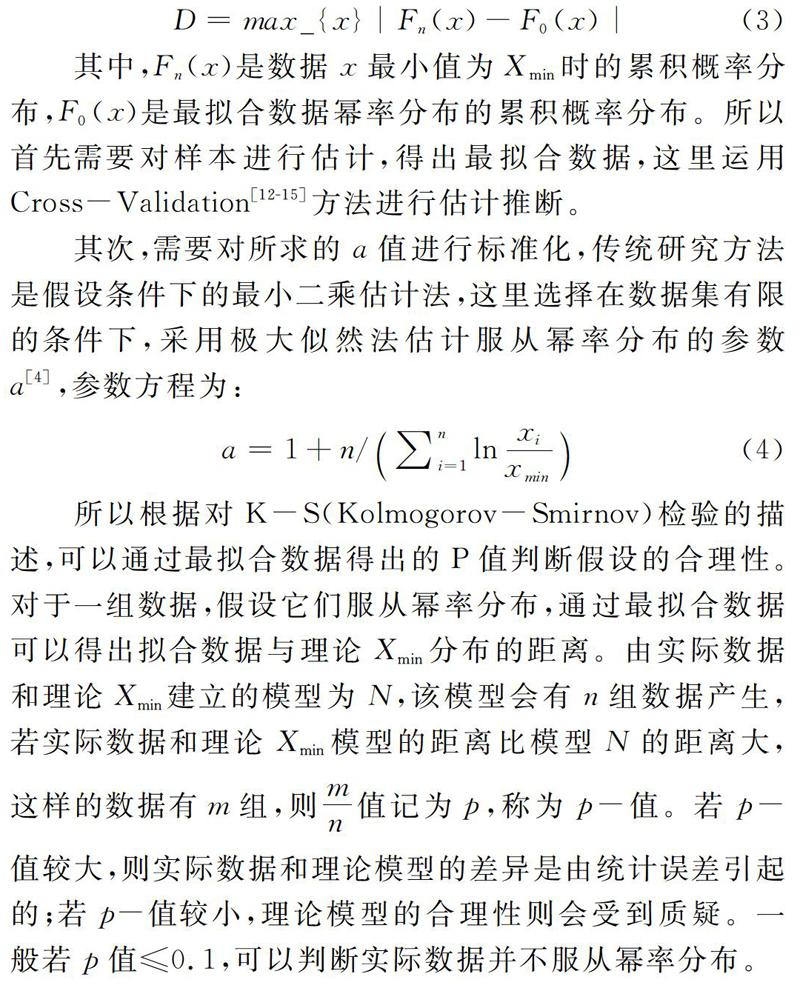 D = max_{x} | Fn(x) − F0(x) | (3)
其中,Fn(x)是数据 x 最小值为 Xmin时的累积概率分
布,F0(x)是最拟合数据幂率分布的累积概率分布。所以
首先需要对样本进行估计,得出最拟合数据,这里运用
Cross−Validation[12-15]方法进行估计推断。
其次,需要对所求的 a 值进行标准化,传统研究方法
是假设条件下的最小二乘估计法,这里选择在数据集有限
的条件下,采用极大似然法估计服从幂率分布的参数
a[4],参数方程为:
a = 1 + n/(∑ni=1 ln xi/xmin) (4)
所以根据对 K−S(Kolmogorov−Smirnov)检验的描
述,可以通过最拟合数据得出的 P 值判断假设的合理性。
对于一组数据,假设它们服从幂率分布,通过最拟合数据
可以得出拟合数据与理论 Xmin分布的距离。由实际数据
和理论 Xmin建立的模型为 N,该模型会有 n 组数据产生,
若实际数据和理论 Xmin模型的距离比模型 N 的距离大,
这样的数据有 m 组,则m/n值记为 p,称为 p−值。若 p−
值较大,则实际数据和理论模型的差异是由统计误差引起
的;若 p−值较小,理论模型的合理性则会受到质疑。一
般若 p 值≤0.1,可以判断实际数据并不服从幂率分布。